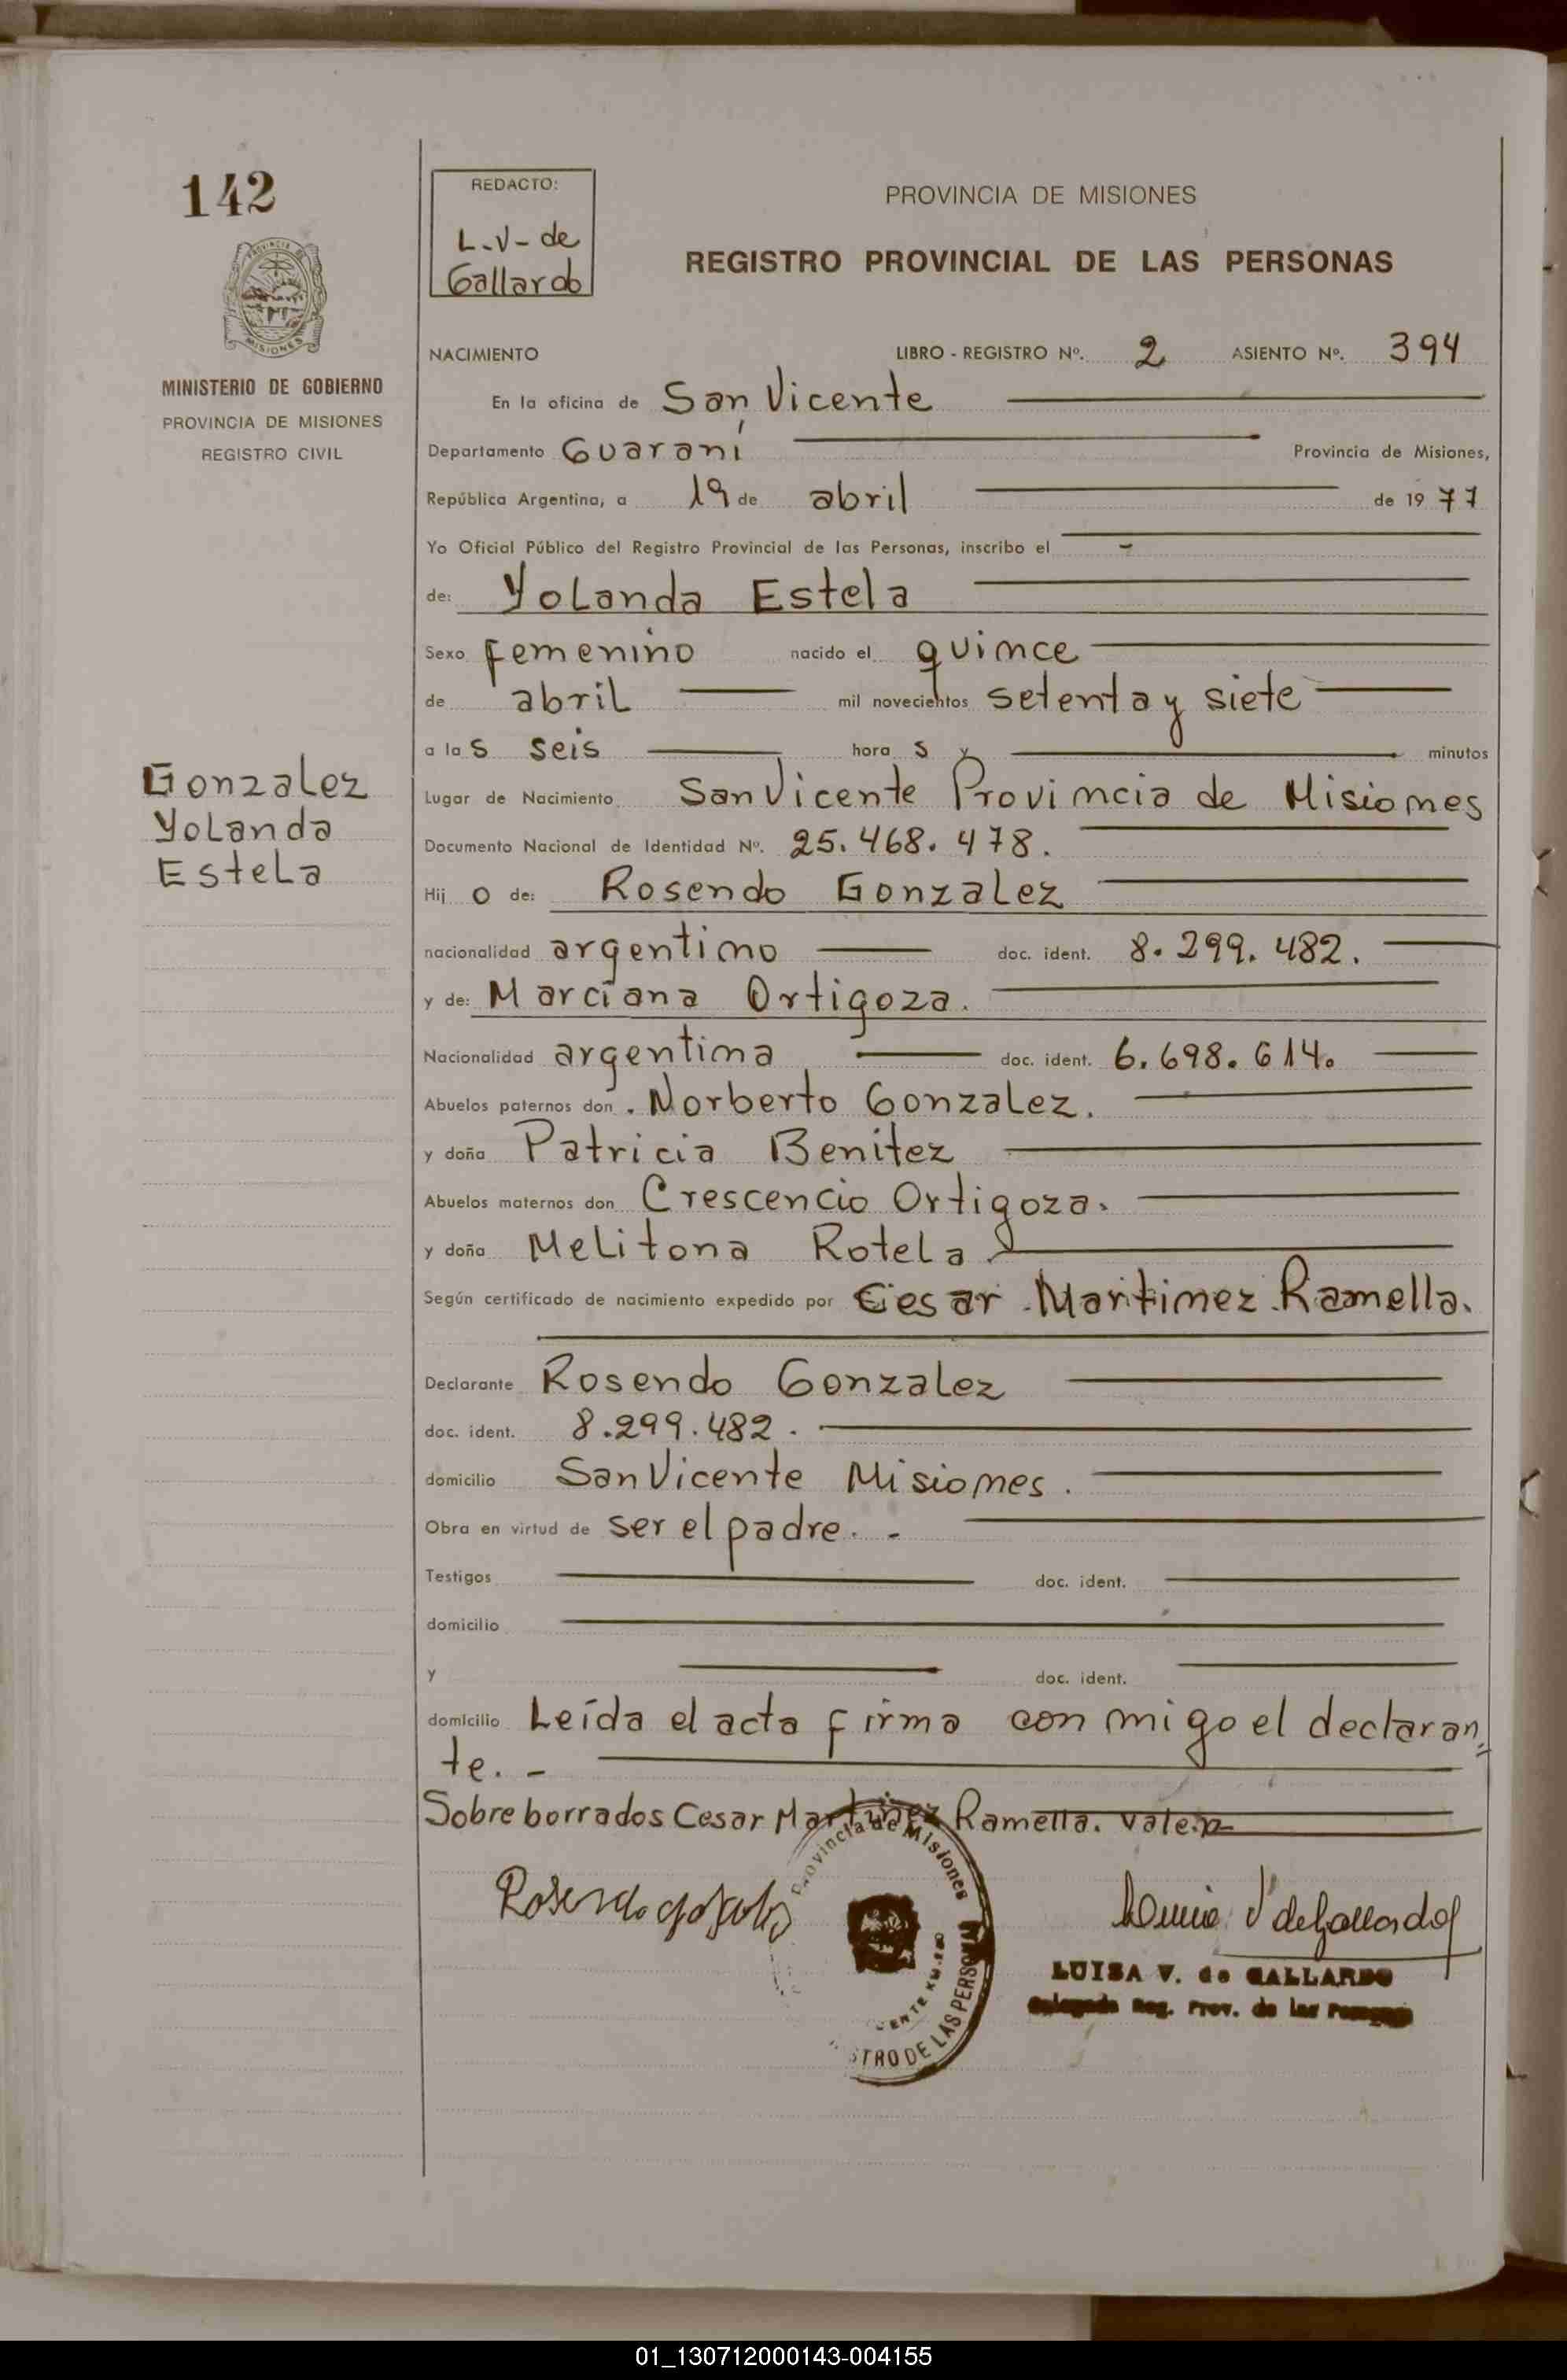 142
REDACTO:
L-V- de
Gallardo
PROVINCIA DE MISIONES
REGISTRO PROVINCIAL DE LAS PERSONAS
PROVINCIA DE
MISIONES
MINISTERIO DE GOBIERNO
PROVINCIA DE MISIONES
REGISTRO CIVIL
NACIMIENTO LIBRO - REGISTRO Nº. 2 ASIENTO Nº. 394
En la oficina de San Vicente
Departamento Guaraní Provincia de Misiones,
República Argentina, a 19 de abril de 19 77
Yo Oficial Público del Registro Provincial de las Personas, inscribo el -
de: Yolanda Estela
Sexo femenino nacido el quince
de abril mil novecientos setenta y siete
a las seis hora s y minutos
Gonzalez
Yolanda
Estela
Lugar de Nacimiento San Vicente Provincia de Misiones
Documento Nacional de Identidad Nº. 25.468.478.
Hij o de: Rosendo Gonzalez
nacionalidad argentino doc. ident. 8.299.482.
y de: Marciana Ortigoza.
Nacionalidad argentina doc. ident. 6.698.614.
Abuelos paternos don . Norberto Gonzalez.
y doña Patricia Benitez
Abuelos maternos don Crescencio Ortigoza.
y doña Melitona Rotela
Según certificado de nacimiento expedido por Cesar Martinez Ramella.
Declarante Rosendo Gonzalez
doc. ident. 8.299.482.
domicilio San Vicente Misiones.
Obra en virtud de ser el padre. -
Testigos doc. ident.
domicilio
y doc. ident.
domicilio Leída el acta firma con migo el declaran=
te. -
Sobre borrados Cesar Martinez Ramella. Valen
Provincia de Misiones
STRO DE LAS PERSONAS
ENTE KM.
Rosendo
LUISA V. de GALLARDO
Delegada Reg. Prov. de las Personas
01_130712000143-004155